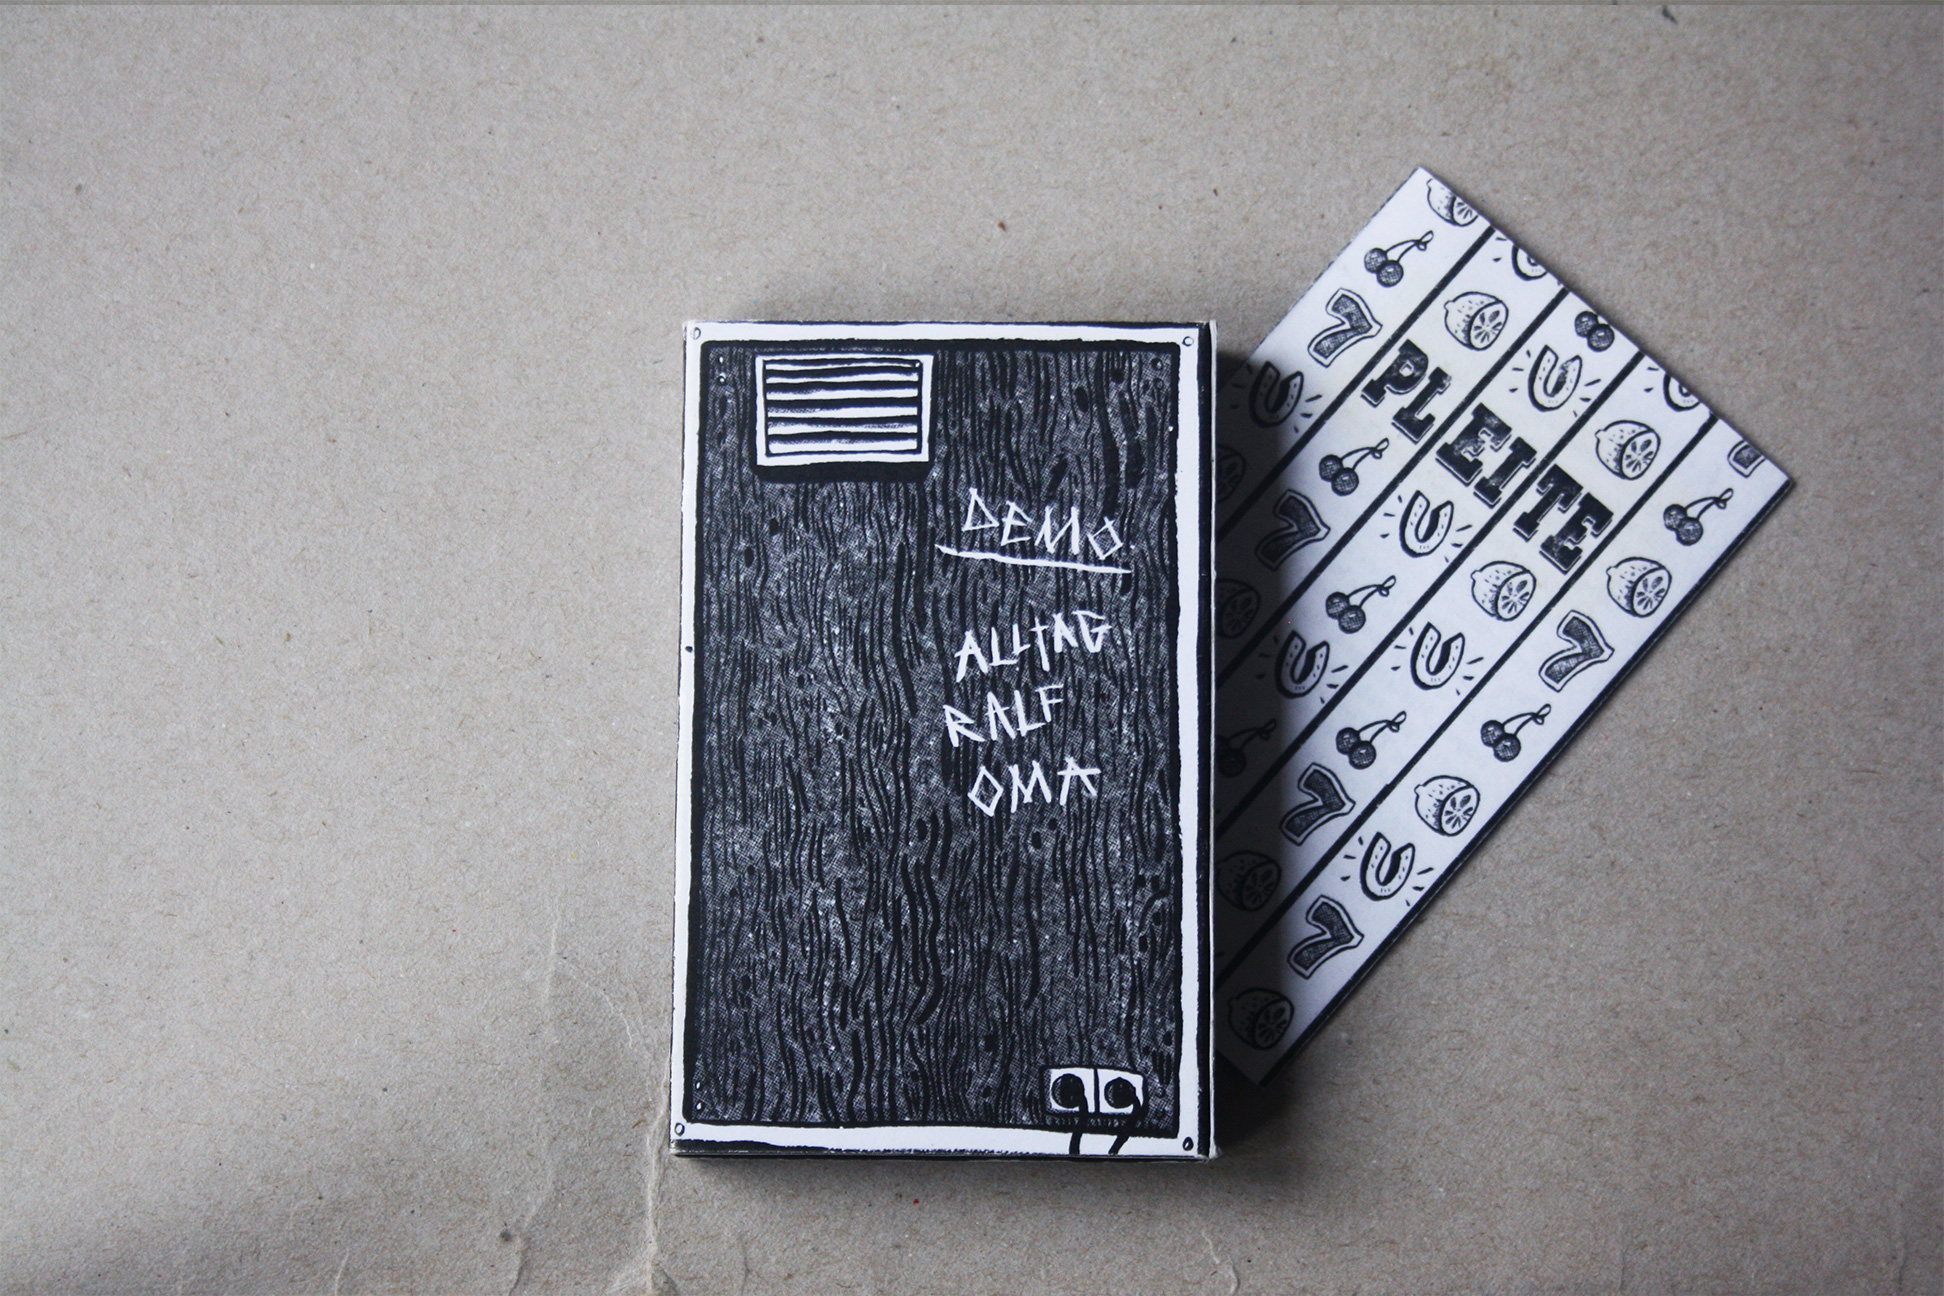 DEMO
ALLTAG
RALF
OMA
PLEITE